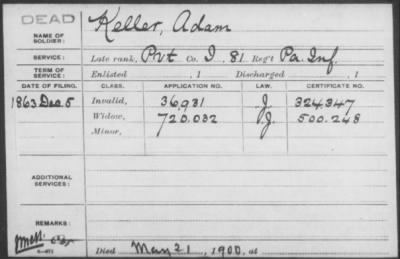 DEAD
Keller, Adam
NAME OF
SOLDIER:
SERVICE: Late rank, Pvt Co. I. 81 Reg't Pa. Inf.
TERM OF
SERVICE: Enlisted , 1 Discharged , 1
DATE OF FILING. CLASS. APPLICATION NO. LAW. CERTIFICATE NO.
1863 Dec. 5 Invalid, 36,931 J. 324347
Widow, 720.032 J. 500.248
Minor,
ADDITIONAL
SERVICES:
REMARKS:
Died May 21, 1900, at